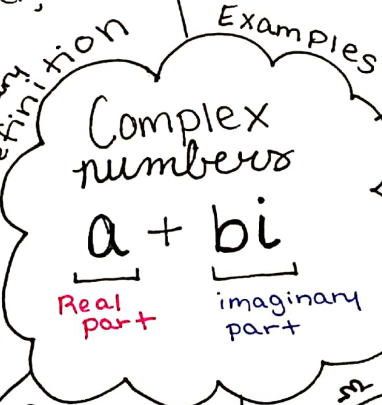 Examples
Complex
numbers
a + bi
Real
part
imaginary
part